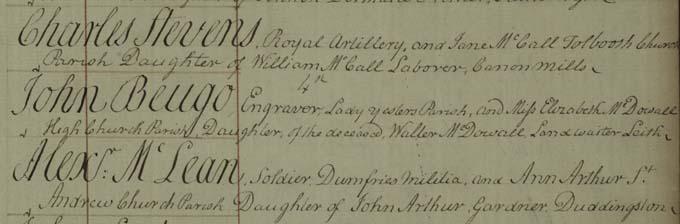 Charles Stevens, Royal Artillery, and Jane McCall Tolbooth Church
Parish Daughter of William McCall Laborer, Canon Mills
4th
John Beugo Engraver, Lady Yesters Parish, and Miss Elizabeth McDowall
High Church Parish, Daughter, of the deceased, Willer McDowall, Landwaiter Leith
Alexr. McLean, Soldier, Dumfries Militia, and Ann Arthur St.
Andrew Church Parish Daughter of John Arthur, Gardner, Duddingston